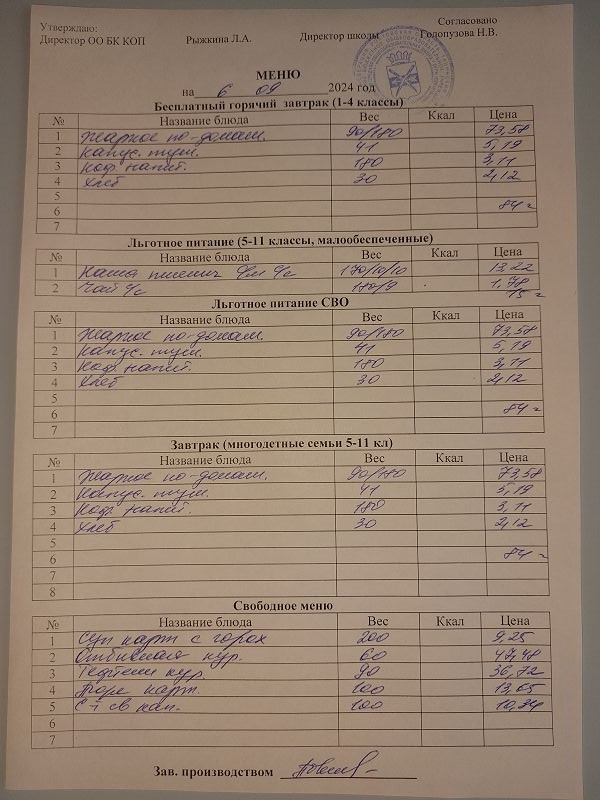 Утверждаю:
Согласовано
Директор ОО БК КОП Рыжкина Л.А. Директор школы Голопузова Н.В.
МЕНЮ
на 6 09 2024 год
Бесплатный горячий завтрак (1-4 классы)
№ Название блюда Вес Ккал Цена
1 Жаркое по-домаш. 90/180 73,58
2 Капус. туш. 41 5,19
3 Коф. напит. 180 3,11
4 Хлеб 30 2,12
5
6 84=
7
Льготное питание (5-11 классы, малообеспеченные)
№ Название блюда Вес Ккал Цена
1 Каша пшенич 170/10/10 13,22
2 Чай с/с 180/9 1,78
15=
Льготное питание СВО
№ Название блюда Вес Ккал Цена
1 Жаркое по-домаш. 90/180 73,58
2 Капус. туш. 41 5,19
3 Коф. напит. 180 3,11
4 Хлеб 30 2,12
5
6 84=
7
Завтрак (многодетные семьи 5-11 кл)
№ Название блюда Вес Ккал Цена
1 Жаркое по-домаш. 90/180 73,58
2 Капус. туш. 41 5,19
3 Коф. напит. 180 3,11
4 Хлеб 30 2,12
5
6 84=
7
8
Свободное меню
№ Название блюда Вес Ккал Цена
1 Суп карт с горох 200 9,25
2 Отбивная кур. 60 47,48
3 Тефтели кур. 90 36,72
4 Пюре карт. 100 13,65
5 С-т св кап. 100 10,34
6
7
Зав. производством